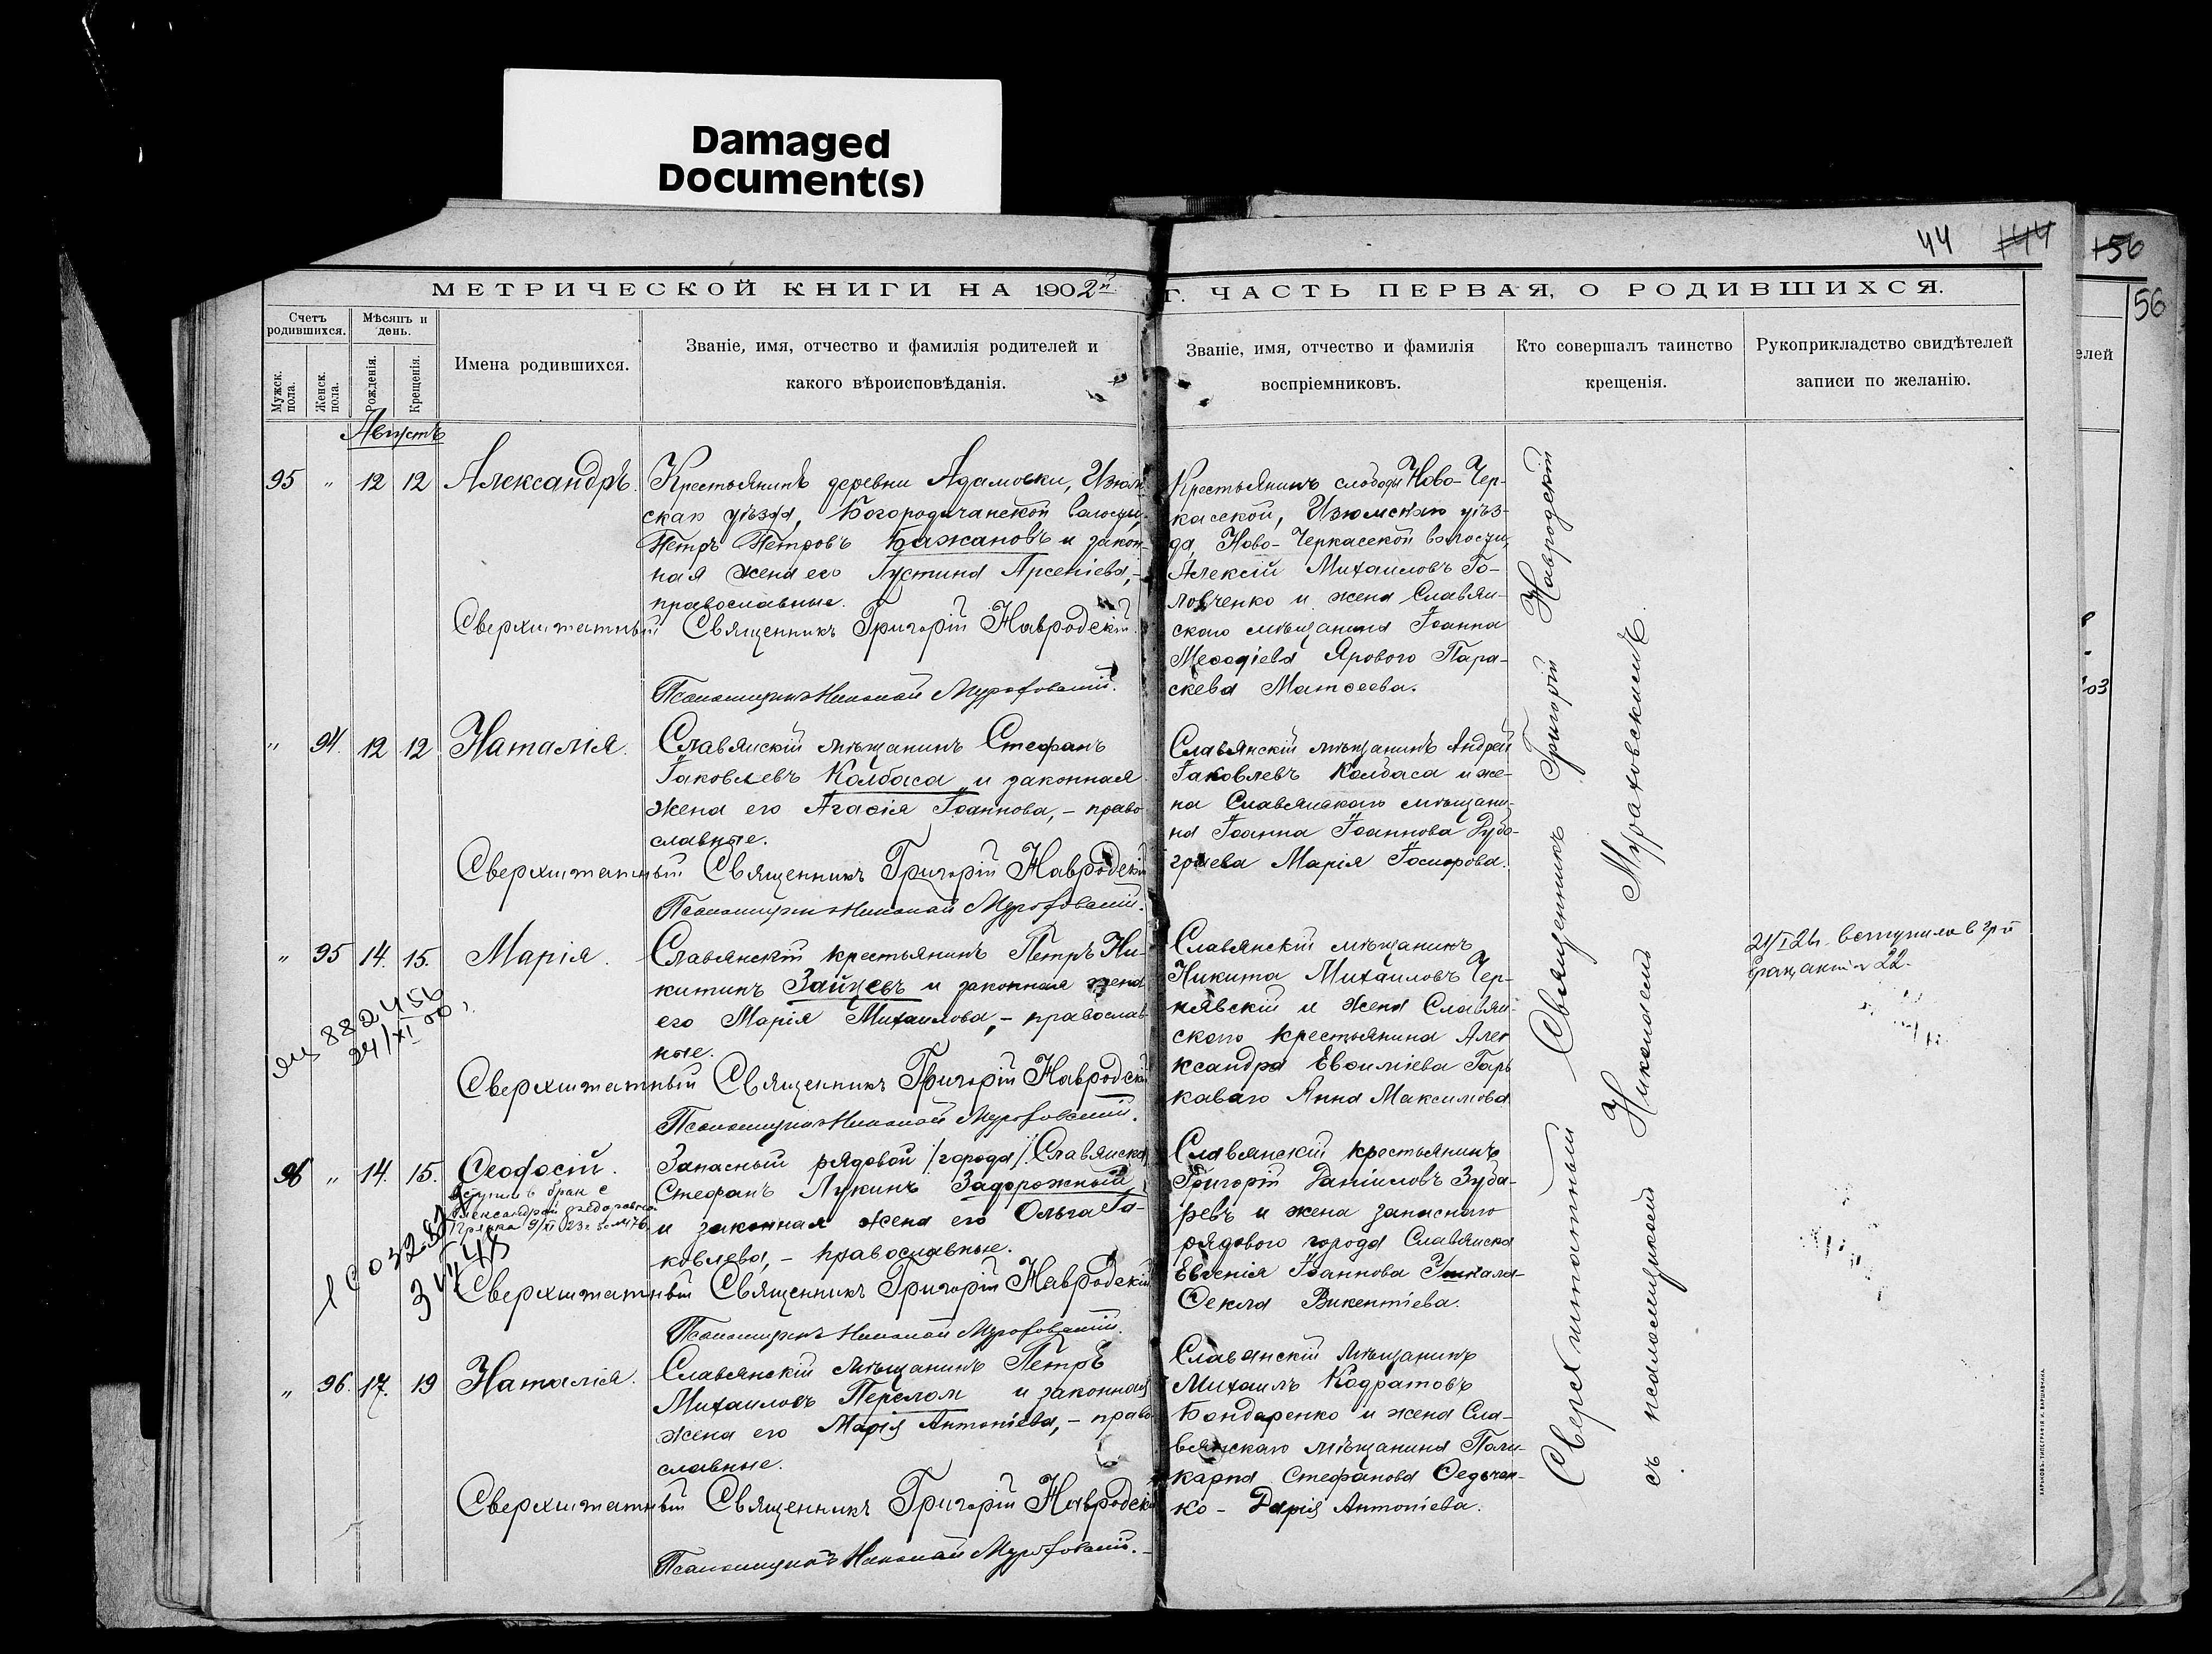 Damaged
Document(s)
44 144 156
56
МЕТРИЧЕСКОЙ КНИГИ НА 1902й Г. ЧАСТЬ ПЕРВАЯ, О РОДИВШИХСЯ.
Счетъ родившихся.
Мужск. пола.
Женск. пола.
Мѣсяцъ и день.
Рожденія.
Крещенія.
Имена родившихся.
Званіе, имя, отчество и фамилія родителей и
какого вѣроисповѣданія.
Званіе, имя, отчество и фамилія
воспріемниковъ.
Кто совершалъ таинство
крещенія.
Рукоприкладство свидѣтелей
записи по желанію.
елей
Августъ
95 " 12 12 Александръ.
Крестьянинъ деревни Адамовки, Изюм-
скаго уѣзда, Богородичанской волости,
Петръ Петровъ Бажановъ и закон-
ная жена его Іустина Арсеніева,-
православные.
Сверхштатный Священникъ Григорій Навродскій.
Псаломщикъ Николай Мураховскій.
Крестьянинъ слободы Ново-Чер-
касской, Изюмскаго уѣз-
да, Ново-Черкасской волости,
Алексій Михаиловъ Го-
ловченко и жена Славян-
скаго мѣщанина Іоанна
Меѳодіева Ярового Пара-
скева Матѳеева.
" 94. 12 12 Наталія.
Славянскій мѣщанинъ Стефанъ
Іаковлевъ Колбаса и законная
жена его Агаѳія Іоаннова, - право
славные.
Сверхштатный Священникъ Григорій Навродскій
Псаломщикъ Николай Мураховскій.
Славянскій мѣщанинъ Андрей
Іаковлевъ Колбаса и же-
на Славянскаго мѣщани-
на Іоанна Іоаннова
Марія
" 95 14. 15. Марія.
Славянскій крестьянинъ Петръ Ни-
китинъ Зайцевъ и законная жена
его Марія Михаилова, - православ
ные.
Сверхштатный Священникъ Григорій Навродскій
Псаломщикъ Николай Мураховскій.
Славянскій мѣщанинъ
Никита Михаиловъ Чер-
нявскій и жена Славян-
скаго крестьянина Алек
ксандра Евѳиміева Гарь
каваго Анна Максимова
882456
24/XI
96 " 14. 15. Ѳеодосій.
Вступил в брак с
Александрой
Запасный рядовой /города/ Славянска
Стефанъ Лукинъ Задорожный
и законная жена его Ольга Іа-
ковлева, - православные.
Сверхштатный Священникъ Григорій Навродскій
Псаломщикъ Николай Мураховскій.
Славянскій крестьянинъ
Григорій Даніиловъ Зуба-
ревъ и жена запаснаго
рядового города Славянска
Евгенія Іоаннова
Ѳекла Викентіева.
" 96. 17. 19 Наталія.
Славянскій мѣщанинъ Петръ
Михаиловъ Перелом и законная
жена его Марія Антоніева, - право
славные.
Сверхштатный Священникъ Григорій Навродскій
Псаломщикъ Николай Мураховскій.
Славянскій мѣщанинъ
Михаилъ Кодратовъ
Бондаренко и жена Сла-
вянскаго мѣщанина Поли-
карпа Стефанова Ѳедьчен-
ко - Дарія Антоніева.
Сверхштатный Священникъ Григорій Навродскій
съ псаломщикомъ Николаемъ Мураховскимъ.
вступила в
22.
ХАРЬКОВЪ. ТИПОГРАФІЯ И. ВАРШАВЧИКА.